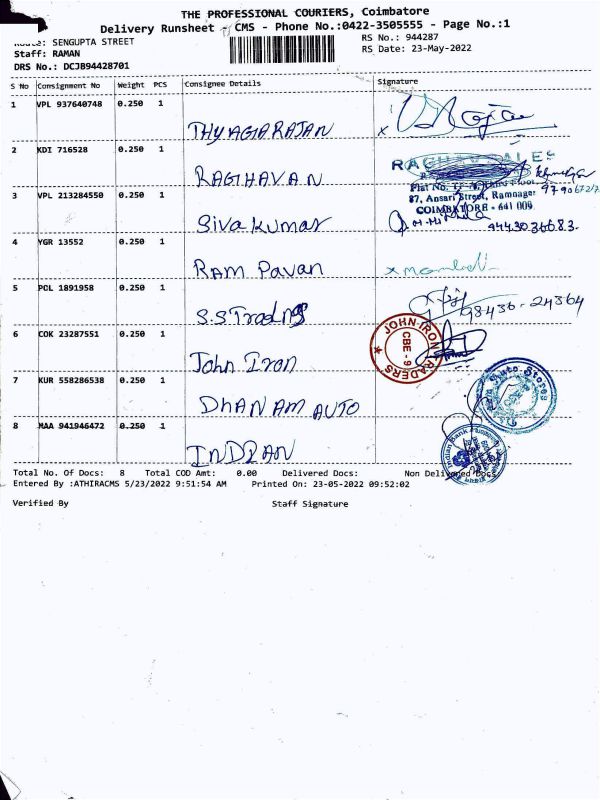 THE PROFESSIONAL COURIERS, Coimbatore
Delivery Runsheet - CMS - Phone No.:0422-3505555 - Page No.:1
: SENGUPTA STREET
RS No.: 944287
Staff: RAMAN
RS Date: 23-May-2022
DRS No.: DCJB94428701
S No Consignment No Weight PCS Consignee Details Signature
1 VPL 937640748 0.250 1 THYAGARAJAN
2 KDI 716528 0.250 1 RAGHAVAN
RAGHAV SALES
Flat No.
87, Ansari Street, Ramnagar
COIMBATORE - 641 009
3 VPL 213284550 0.250 1 Siva kumar
4 YGR 13552 0.250 1 Ram Pavan
5 POL 1891958 0.250 1 S.S Trading 98436-24364
6 COK 23287551 0.250 1 John Iron
JOHN IRON TRADERS
CBE - 9
7 KUR 558286538 0.250 1 DHANAM AUTO
Auto Stores
8 MAA 941946472 0.250 1 INDIAN
Indian Bank
Total No. Of Docs: 8 Total COD Amt: 0.00 Delivered Docs: Non Delivered Docs
Entered By :ATHIRACMS 5/23/2022 9:51:54 AM Printed On: 23-05-2022 09:52:02
Verified By Staff Signature